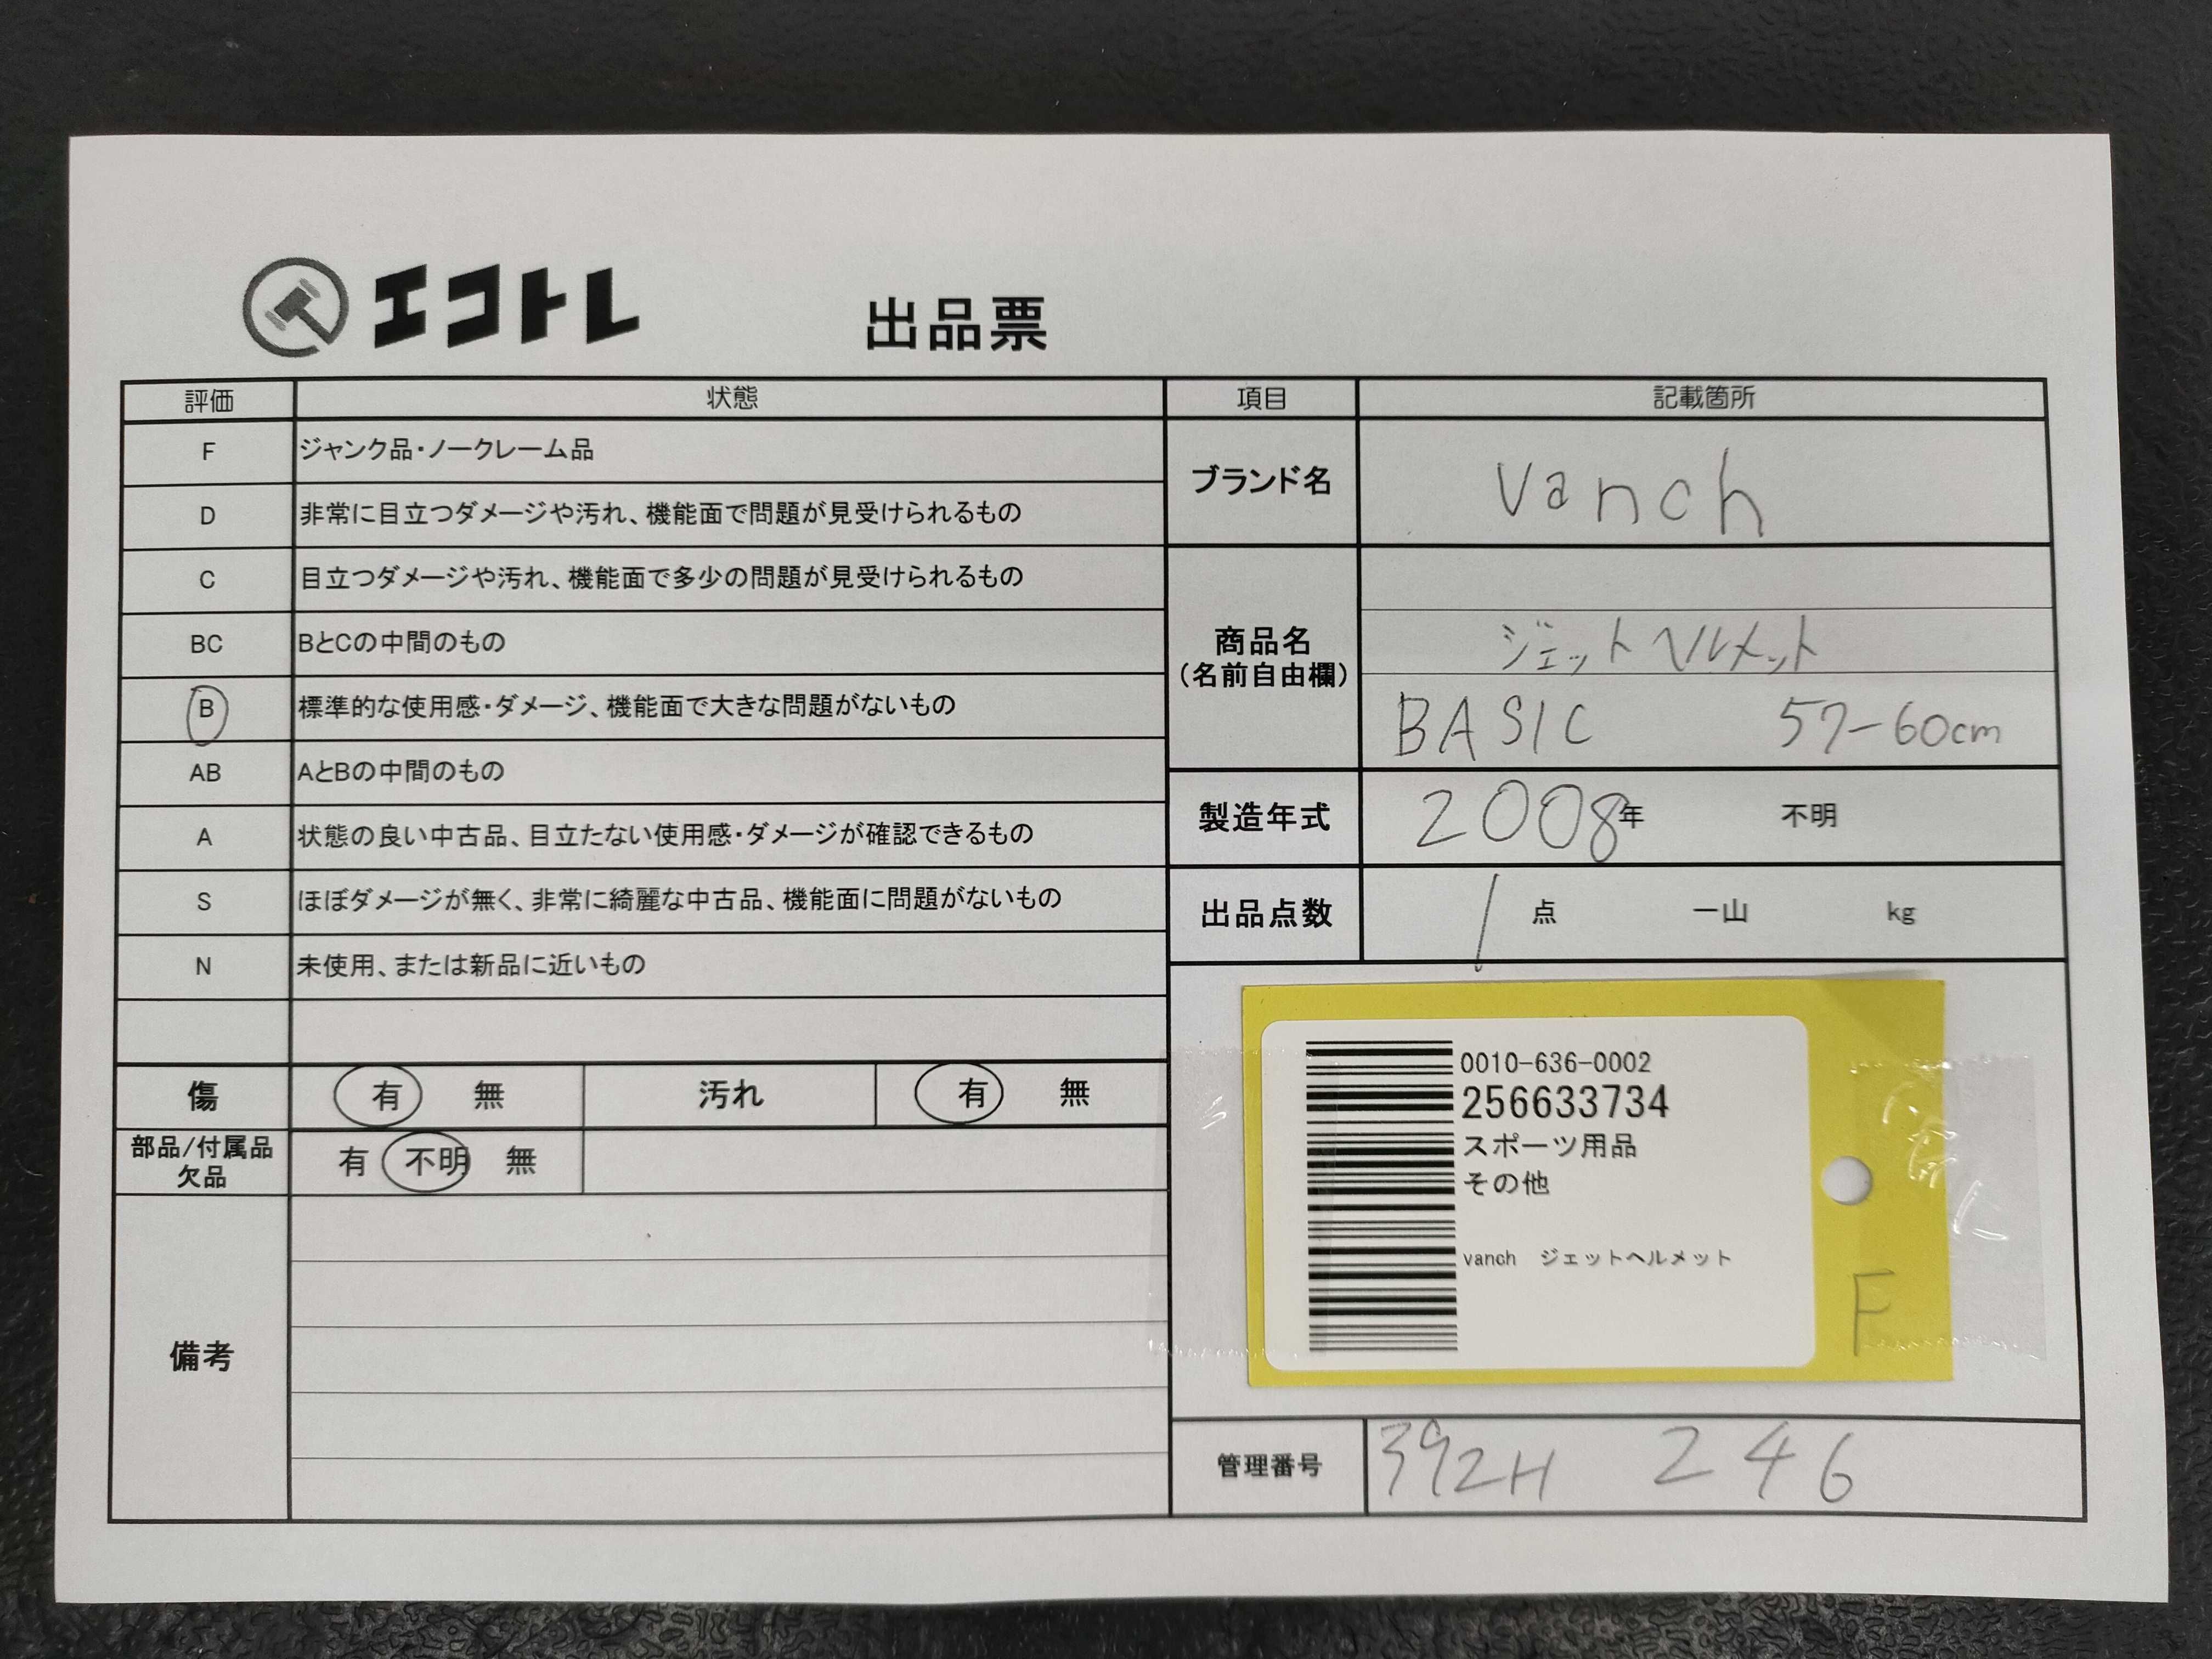 エコトレ
出品票
評価 状態
F ジャンク品・ノークレーム品
D 非常に目立つダメージや汚れ、機能面で問題が見受けられるもの
C 目立つダメージや汚れ、機能面で多少の問題が見受けられるもの
BC BとCの中間のもの
B 標準的な使用感・ダメージ、機能面で大きな問題がないもの
AB AとBの中間のもの
A 状態の良い中古品、目立たない使用感・ダメージが確認できるもの
S ほぼダメージが無く、非常に綺麗な中古品、機能面に問題がないもの
N 未使用、または新品に近いもの
傷 有 無 汚れ 有 無
部品/付属品
欠品
有 不明 無
備考
項目 記載箇所
ブランド名 vanch
商品名
(名前自由欄)
ジェットヘルメット
BASIC 57-60cm
製造年式 2008年 不明
出品点数 1 点 一山 kg
0010-636-0002
256633734
スポーツ用品
その他
vanch ジェットヘルメット
F
管理番号 392H 246